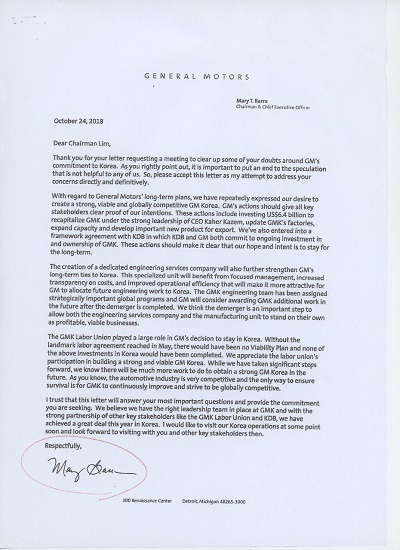 GENERAL MOTORS
Mary T. Barra
Chairman & Chief Executive Officer
October 24, 2018
Dear Chairman Lim,
Thank you for your letter requesting a meeting to clear up some of your doubts around GM's
commitment to Korea. As you rightly point out, it is important to put an end to the speculation
that is not helpful to any of us. So, please accept this letter as my attempt to address your
concerns directly and definitively.
With regard to General Motors' long-term plans, we have repeatedly expressed our desire to
create a strong, viable and globally competitive GM Korea. GM's actions should give all key
stakeholders clear proof of our intentions. These actions include investing US$6.4 billion to
recapitalize GMK under the strong leadership of CEO Kaher Kazem, update GMK's factories,
expand capacity and develop important new product for export. We've also entered into a
framework agreement with KDB in which KDB and GM both commit to ongoing investment in
and ownership of GMK. These actions should make it clear that our hope and intent is to stay for
the long-term.
The creation of a dedicated engineering services company will also further strengthen GM's
long-term ties to Korea. This specialized unit will benefit from focused management, increased
transparency on costs, and improved operational efficiency that will make it more attractive for
GM to allocate future engineering work to Korea. The GMK engineering team has been assigned
strategically important global programs and GM will consider awarding GMK additional work in
the future after the demerger is completed. We think the demerger is an important step to
allow both the engineering services company and the manufacturing unit to stand on their own
as profitable, viable businesses.
The GMK Labor Union played a large role in GM's decision to stay in Korea. Without the
landmark labor agreement reached in May, there would have been no Viability Plan and none of
the above investments in Korea would have been completed. We appreciate the labor union's
participation in building a strong and viable GM Korea. While we have taken significant steps
forward, we know there will be much more work to do to obtain a strong GM Korea in the
future. As you know, the automotive industry is very competitive and the only way to ensure
survival is for GMK to continuously improve and strive to be globally competitive.
I trust that this letter will answer your most important questions and provide the commitment
you are seeking. We believe we have the right leadership team in place at GMK and with the
strong partnership of other key stakeholders like the GMK Labor Union and KDB, we have
achieved a great deal this year in Korea. I would like to visit our Korea operations at some point
soon and look forward to visiting with you and other key stakeholders then.
Respectfully,
Mary Barra
300 Renaissance Center Detroit, Michigan 48265-3000